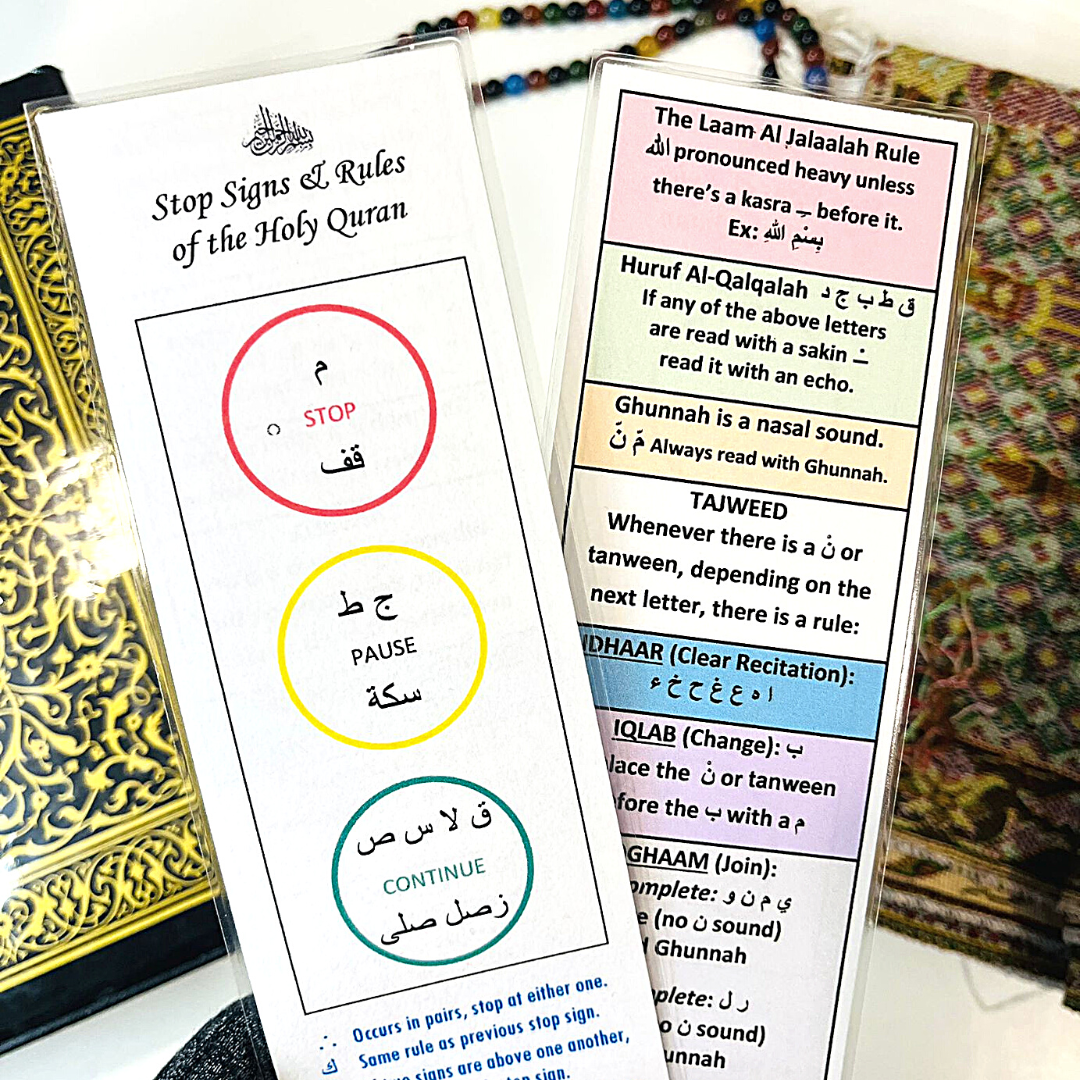 بسم الله الرحمن الرحيم
Stop Signs & Rules
of the Holy Quran
م
STOP
قف
ج ط
PAUSE
سكة
ق لا س ص
CONTINUE
زصل صلى
∴ Occurs in pairs, stop at either one.
ك Same rule as previous stop sign.
signs are above one another,
sign.
The Laam Al Jalaalah Rule
الله pronounced heavy unless
there's a kasra ـِ before it.
Ex: بِسْمِ اللهِ
Huruf Al-Qalqalah ق ط ب ج د
If any of the above letters
are read with a sakin ـْ
read it with an echo.
Ghunnah is a nasal sound.
نّ مّ Always read with Ghunnah.
TAJWEED
Whenever there is a نْ or
tanween, depending on the
next letter, there is a rule:
IDHAAR (Clear Recitation):
ا ه ع غ ح خ ء
IQLAB (Change): ب
lace the نْ or tanween
fore the ب with a م
GHAAM (Join):
omplete: ي م ن و
(no ن sound)
Ghunnah
plete: ر ل
o ن sound)
unnah